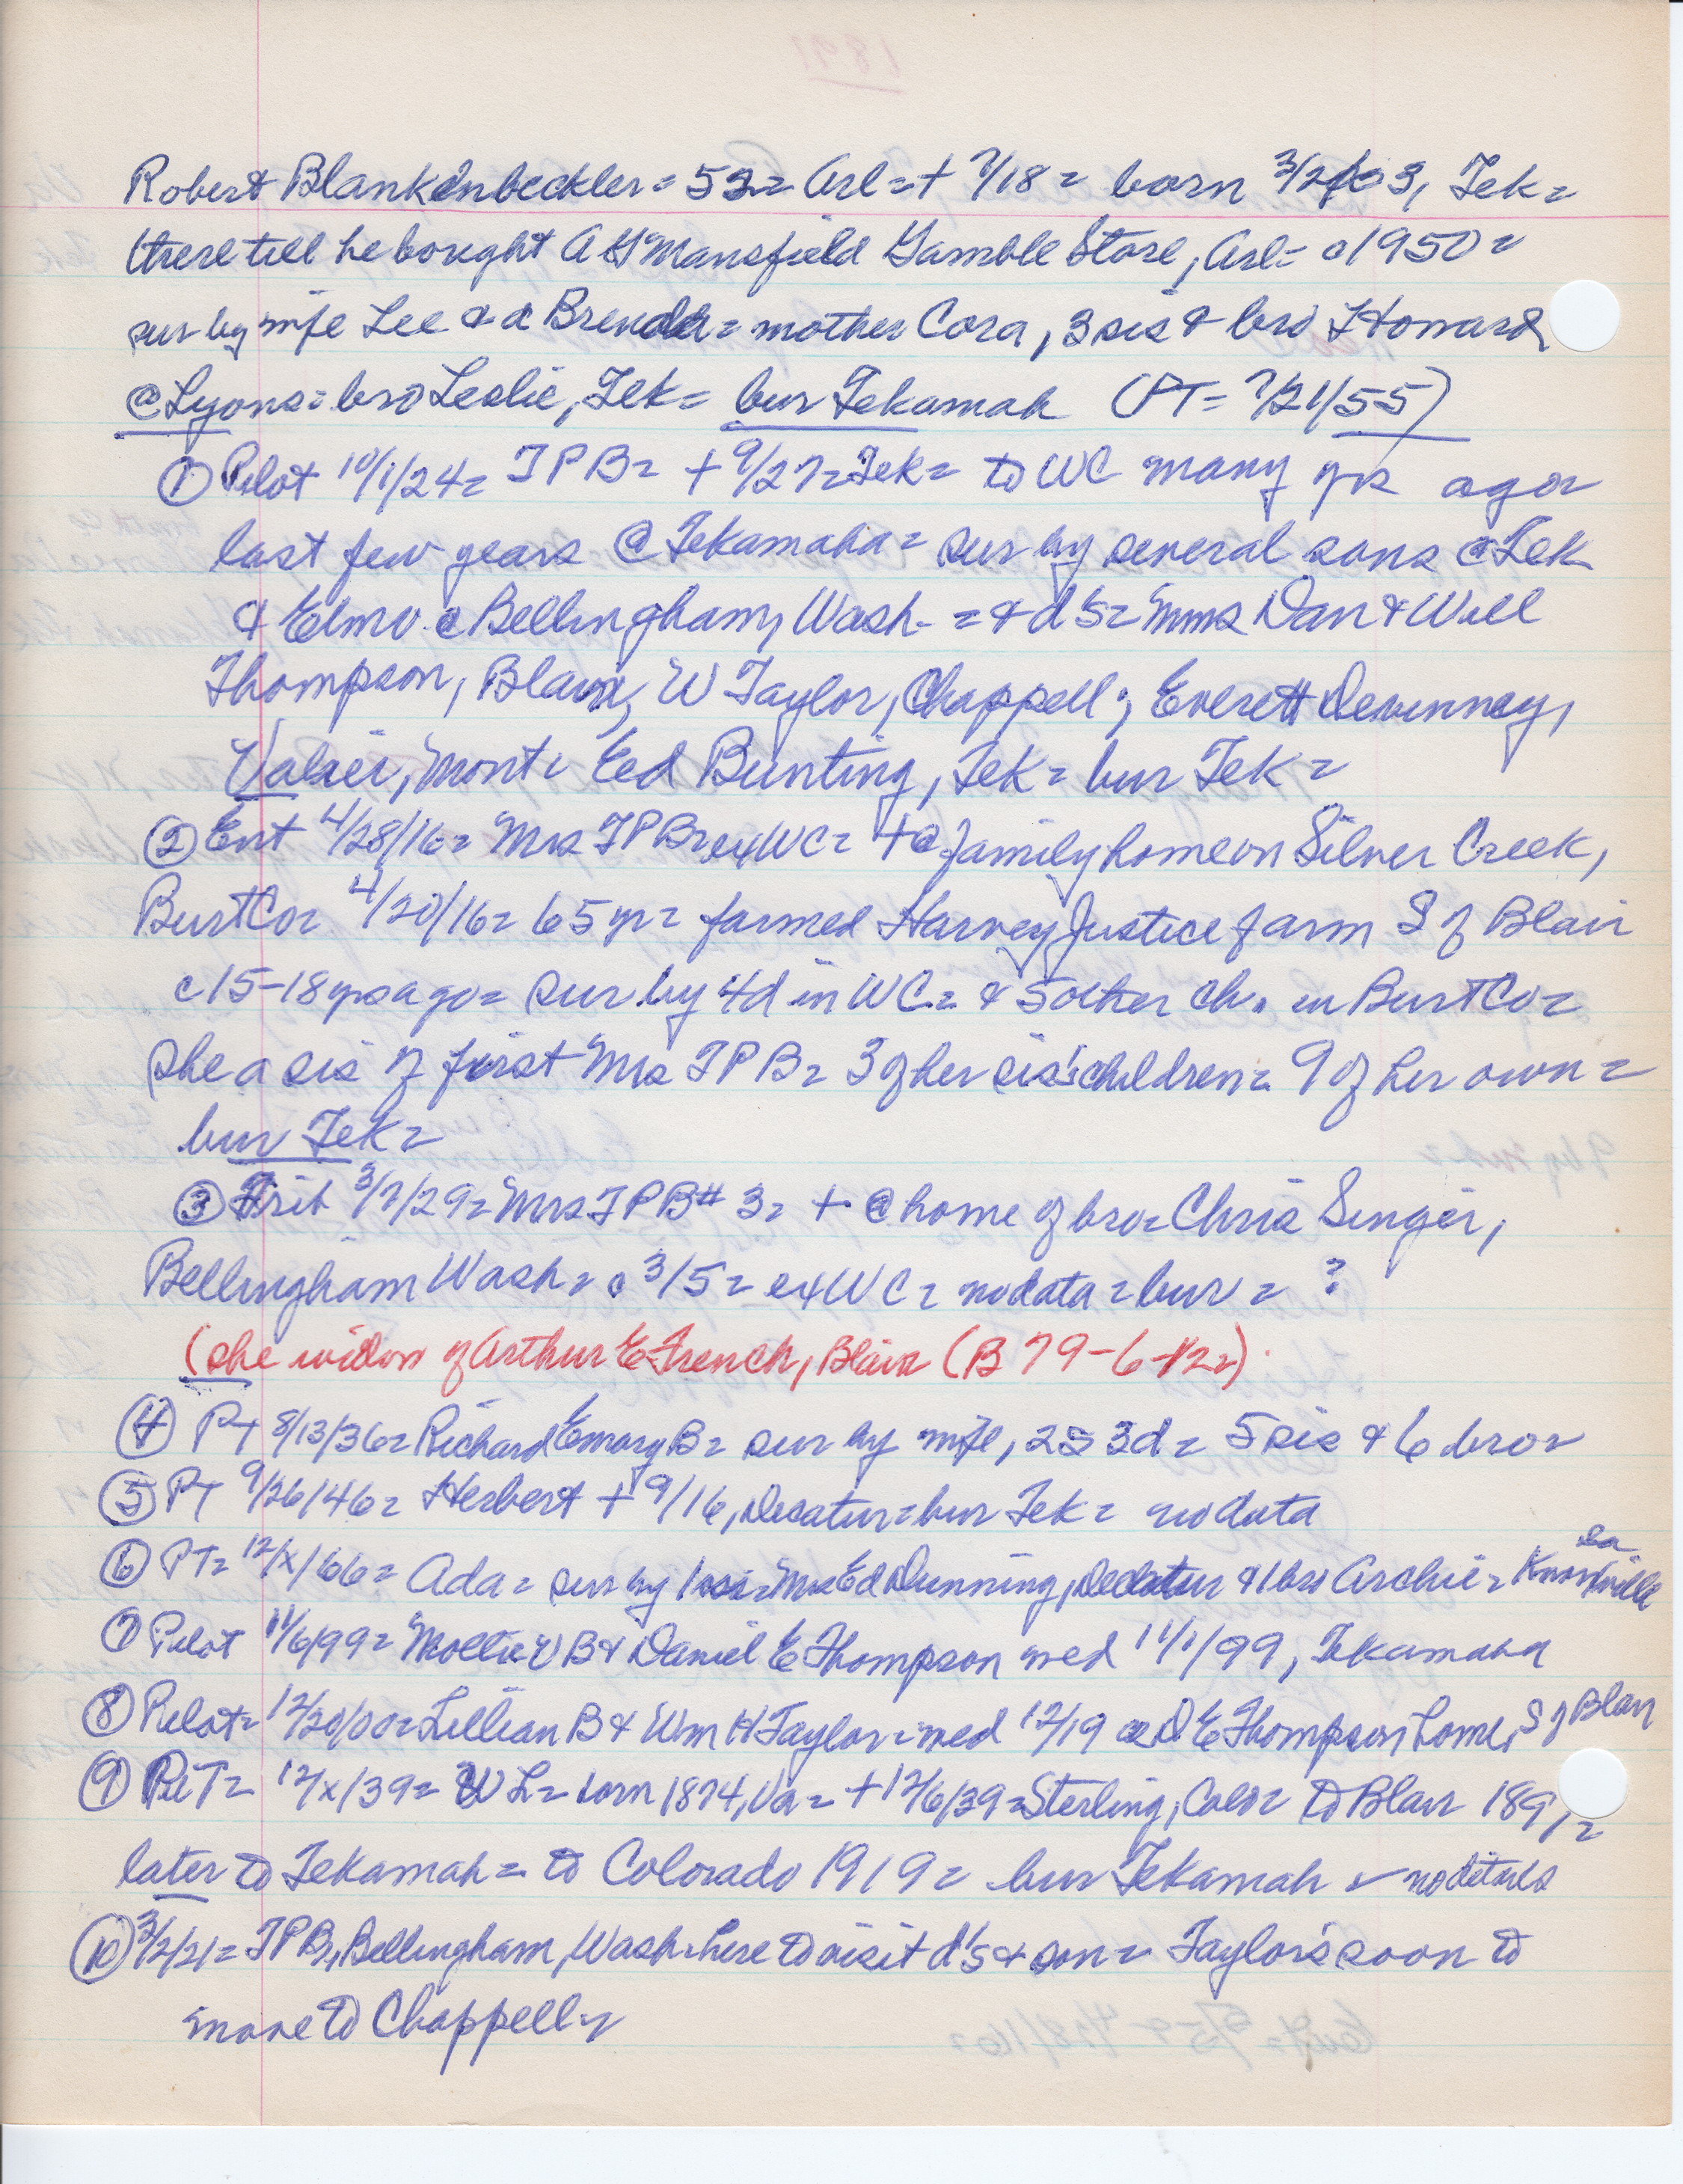 Robert Blankenbeckler = 52 = Arl = + 7/18 = born 3/2/03, Tek =
there till he bought A G Mansfield Gamble Store, Arl = c1950 =
sur by wife Lee & d Brenda = mother Cora, 3 sis & bro Howard
@ Lyons = bro Leslie, Tek = bur Tekamah (PT = 7/21/55)
① Pilot 10/1/24 = T P B = + 9/27 = Tek = to WC many yrs ago
last few years @ Tekamaha = sur by several sons @ Tek
& Elmo @ Bellingham, Wash. = & d's = Mmes Dan & Will
Thompson, Blair, W Taylor, Chappell; Everett Devinney,
Valier, Mont = Ed Bunting, Tek = bur Tek =
② Ent 4/28/16 = Mrs T P B = ex WC = + @ family home on Silver Creek,
Burt Co = 4/20/16 = 65 yr = farmed Harvey Justice farm S of Blair
c 15-18 yrs ago = sur by 4d in WC = & 5 other ch. in Burt Co =
she a sis of first Mrs T P B = 3 of her sis' children = 9 of her own =
bur Tek =
③ Trib 3/7/29 = Mrs T P B # 3 = + @ home of bro = Chris Singer,
Bellingham Wash = c 3/5 = ex WC = no data = bur = ?
(she widow of Arthur E French, Blair (B 79-6-12 =)
④ PT 8/13/36 = Richard Emory B = sur by wife, 2s 3d = 5 sis & 6 bro =
⑤ PT 9/26/46 = Herbert + 9/16, Decatur = bur Tek = no data
⑥ PT = 12/x/66 = Ada = sur by 1 sis = Mrs Ed Dunning, Decatur & 1 bro Archie = Knoxville
⑦ Pilot 11/6/99 = Mollie V B & Daniel E Thompson wed 11/1/99, Tekamaha
⑧ Pilot = 12/20/00 = Lillian B & Wm H Taylor = wed 12/19 @ D E Thompson home, S of Blair
⑨ PT = 12/x/39 = W L = born 1874, Va = + 12/6/39 = Sterling, Colo = to Blair 189
later to Tekamah = to Colorado 1919 = bur Tekamah = no details
⑩ 3/2/21 = T P B, Bellingham, Wash. here to visit d's & son = Taylor's soon to
move to Chappell =